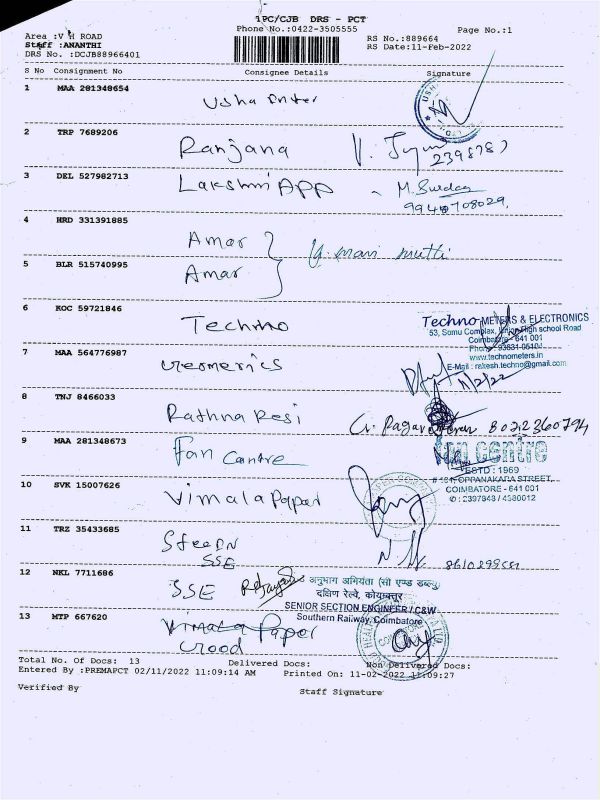 1PC/CJB DRS - PCT
Phone No.:0422-3505555
Page No.:1
Area :V H ROAD
RS No.:889664
Staff :ANANTHI
RS Date:11-Feb-2022
DRS No. :DCJB88966401
S No Consignment No Consignee Details Signature
1 MAA 281348654
Usha
2 TRP 7689206
Ranjana
3 DEL 527982713
Lakshmi APP
4 HRD 331391885
Amar
5 BLR 515740995
Amar
6 KOC 59721846
Techno
Techno METERS & ELECTRONICS
53, Somu Complex, Union High school Road
Coimbatore - 641 001
www.technometers.in
E-Mail : rakesh.techno@gmail.com
7 MAA 564776987
Geomerics
11/2/22
8 TNJ 8466033
Rathna Resi
9 MAA 281348673
Fan Centre
fan centre
ESTD : 1969
OPPANAKARA STREET,
COIMBATORE - 641 001
10 SVK 15007626
Vimala Paper
11 TRZ 35433685
SSE
12 NKL 7711686
SSE
अनुभाग अभियंता (सी एण्ड डब्लू)
दक्षिण रेल्वे, कोयम्बतूर
SENIOR SECTION ENGINEER / C&W
Southern Railway, Coimbatore
13 MTP 667620
Vimala Paper
Total No. Of Docs: 13 Delivered Docs: Non Delivered Docs:
Entered By :PREMAPCT 02/11/2022 11:09:14 AM Printed On: 11-02-2022 11:09:27
Verified By Staff Signature